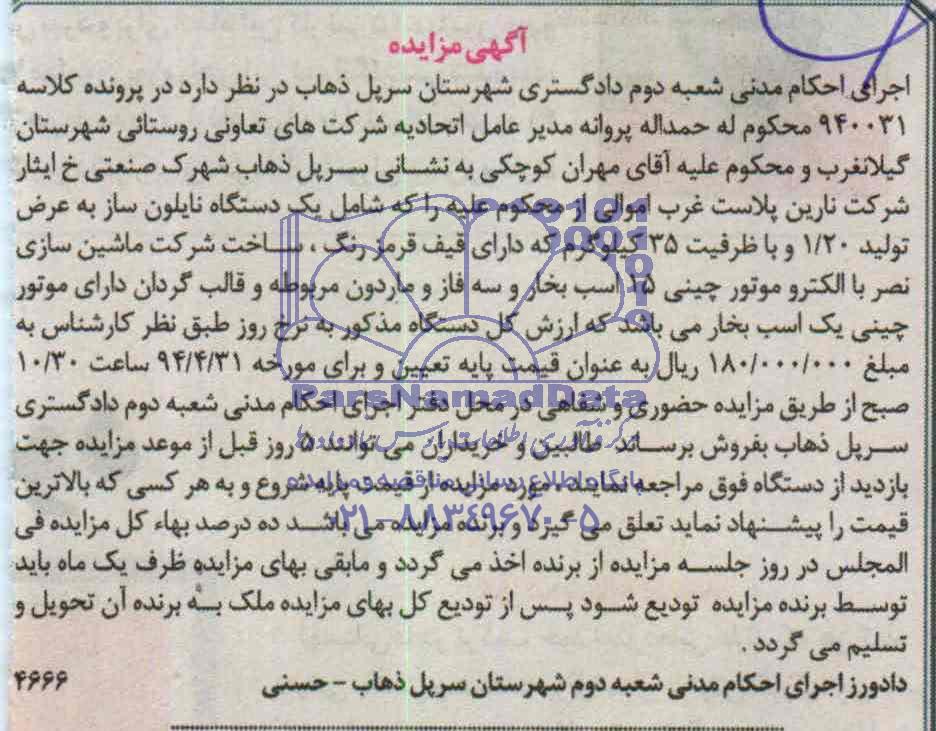 آگهی مزایده
اجرای احکام مدنی شعبه دوم دادگستری شهرستان سرپل ذهاب در نظر دارد در پرونده کلاسه
۹۴۰۰۳۱ محکوم له حمداله پروانه مدیر عامل اتحادیه شرکت های تعاونی روستائی شهرستان
گیلانغرب و محکوم علیه آقای مهران کوچکی به نشانی سرپل ذهاب شهرک صنعتی خ ایثار
شرکت نارین پلاست غرب اموالی از محکوم علیه را که شامل یک دستگاه نایلون ساز به عرض
تولید ۱/۲۰ و با ظرفیت ۳۵ کیلوگرم که دارای قیف قرمز رنگ ، ساخت شرکت ماشین سازی
نصر با الکترو موتور چینی ۱۵ اسب بخار و سه فاز و ماردون مربوطه و قالب گردان دارای موتور
چینی یک اسب بخار می باشد که ارزش کل دستگاه مذکور به نرخ روز طبق نظر کارشناس به
مبلغ ۱۸۰/۰۰۰/۰۰۰ ریال به عنوان قیمت پایه تعیین و برای مورخه ۹۴/۴/۳۱ ساعت ۱۰/۳۰
صبح از طریق مزایده حضوری و شفاهی در محل دفتر اجرای احکام مدنی شعبه دوم دادگستری
سرپل ذهاب بفروش برساند طالبین و خریداران می توانند ۵ روز قبل از موعد مزایده جهت
بازدید از دستگاه فوق مراجعه نمایند . مورد مزایده از قیمت پایه شروع و به هر کسی که بالاترین
قیمت را پیشنهاد نماید تعلق می گیرد و برنده مزایده می باشد ده درصد بهاء کل مزایده فی
المجلس در روز جلسه مزایده از برنده اخذ می گردد و مابقی بهای مزایده ظرف یک ماه باید
توسط برنده مزایده تودیع شود پس از تودیع کل بهای مزایده ملک به برنده آن تحویل و
تسلیم می گردد .
دادورز اجرای احکام مدنی شعبه دوم شهرستان سرپل ذهاب - حسنی
۴۶۶۶
ParsNamadData
پایگاه اطلاع رسانی مناقصه و مزایده
۰۲۱-۸۸۳۴۹۶۷۰-۵